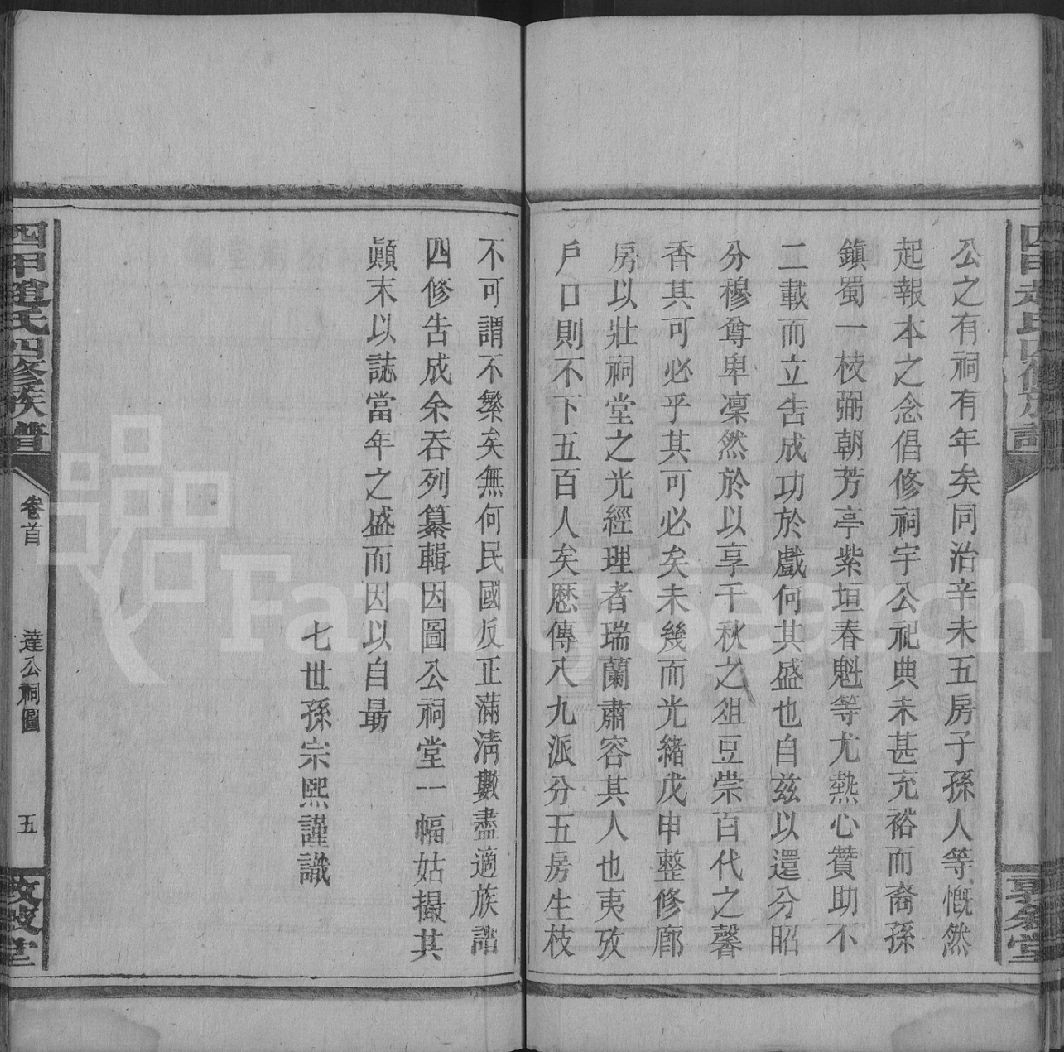 公之有祠有年矣同治辛未五房子孫人等慨然
起報本之念倡修祠宇公祀典未甚充裕而裔孫
鎮蜀一枝弼朝芳亭紫垣春魁等尤熱心贊助不
二載而立告成功於戲何其盛也自茲以還分昭
分穆尊卑凜然於以享千秋之俎豆崇百代之馨
香其可必乎其可必矣未幾而光緒戊申整修廊
房以壯祠堂之光經理者瑞蘭肅容其人也夷攷
戶口則不下五百人矣厯傳八九派分五房生枝
不可謂不繁矣無何民國反正滿淸數盡適族譜
四修告成余吞列纂輯因圖公祠堂一幅姑撮其
顚末以誌當年之盛而因以自最
七世孫宗熙謹識
四甲趙氏四修族譜
卷首
達公祠圖
五
敦敘堂
FamilySearch